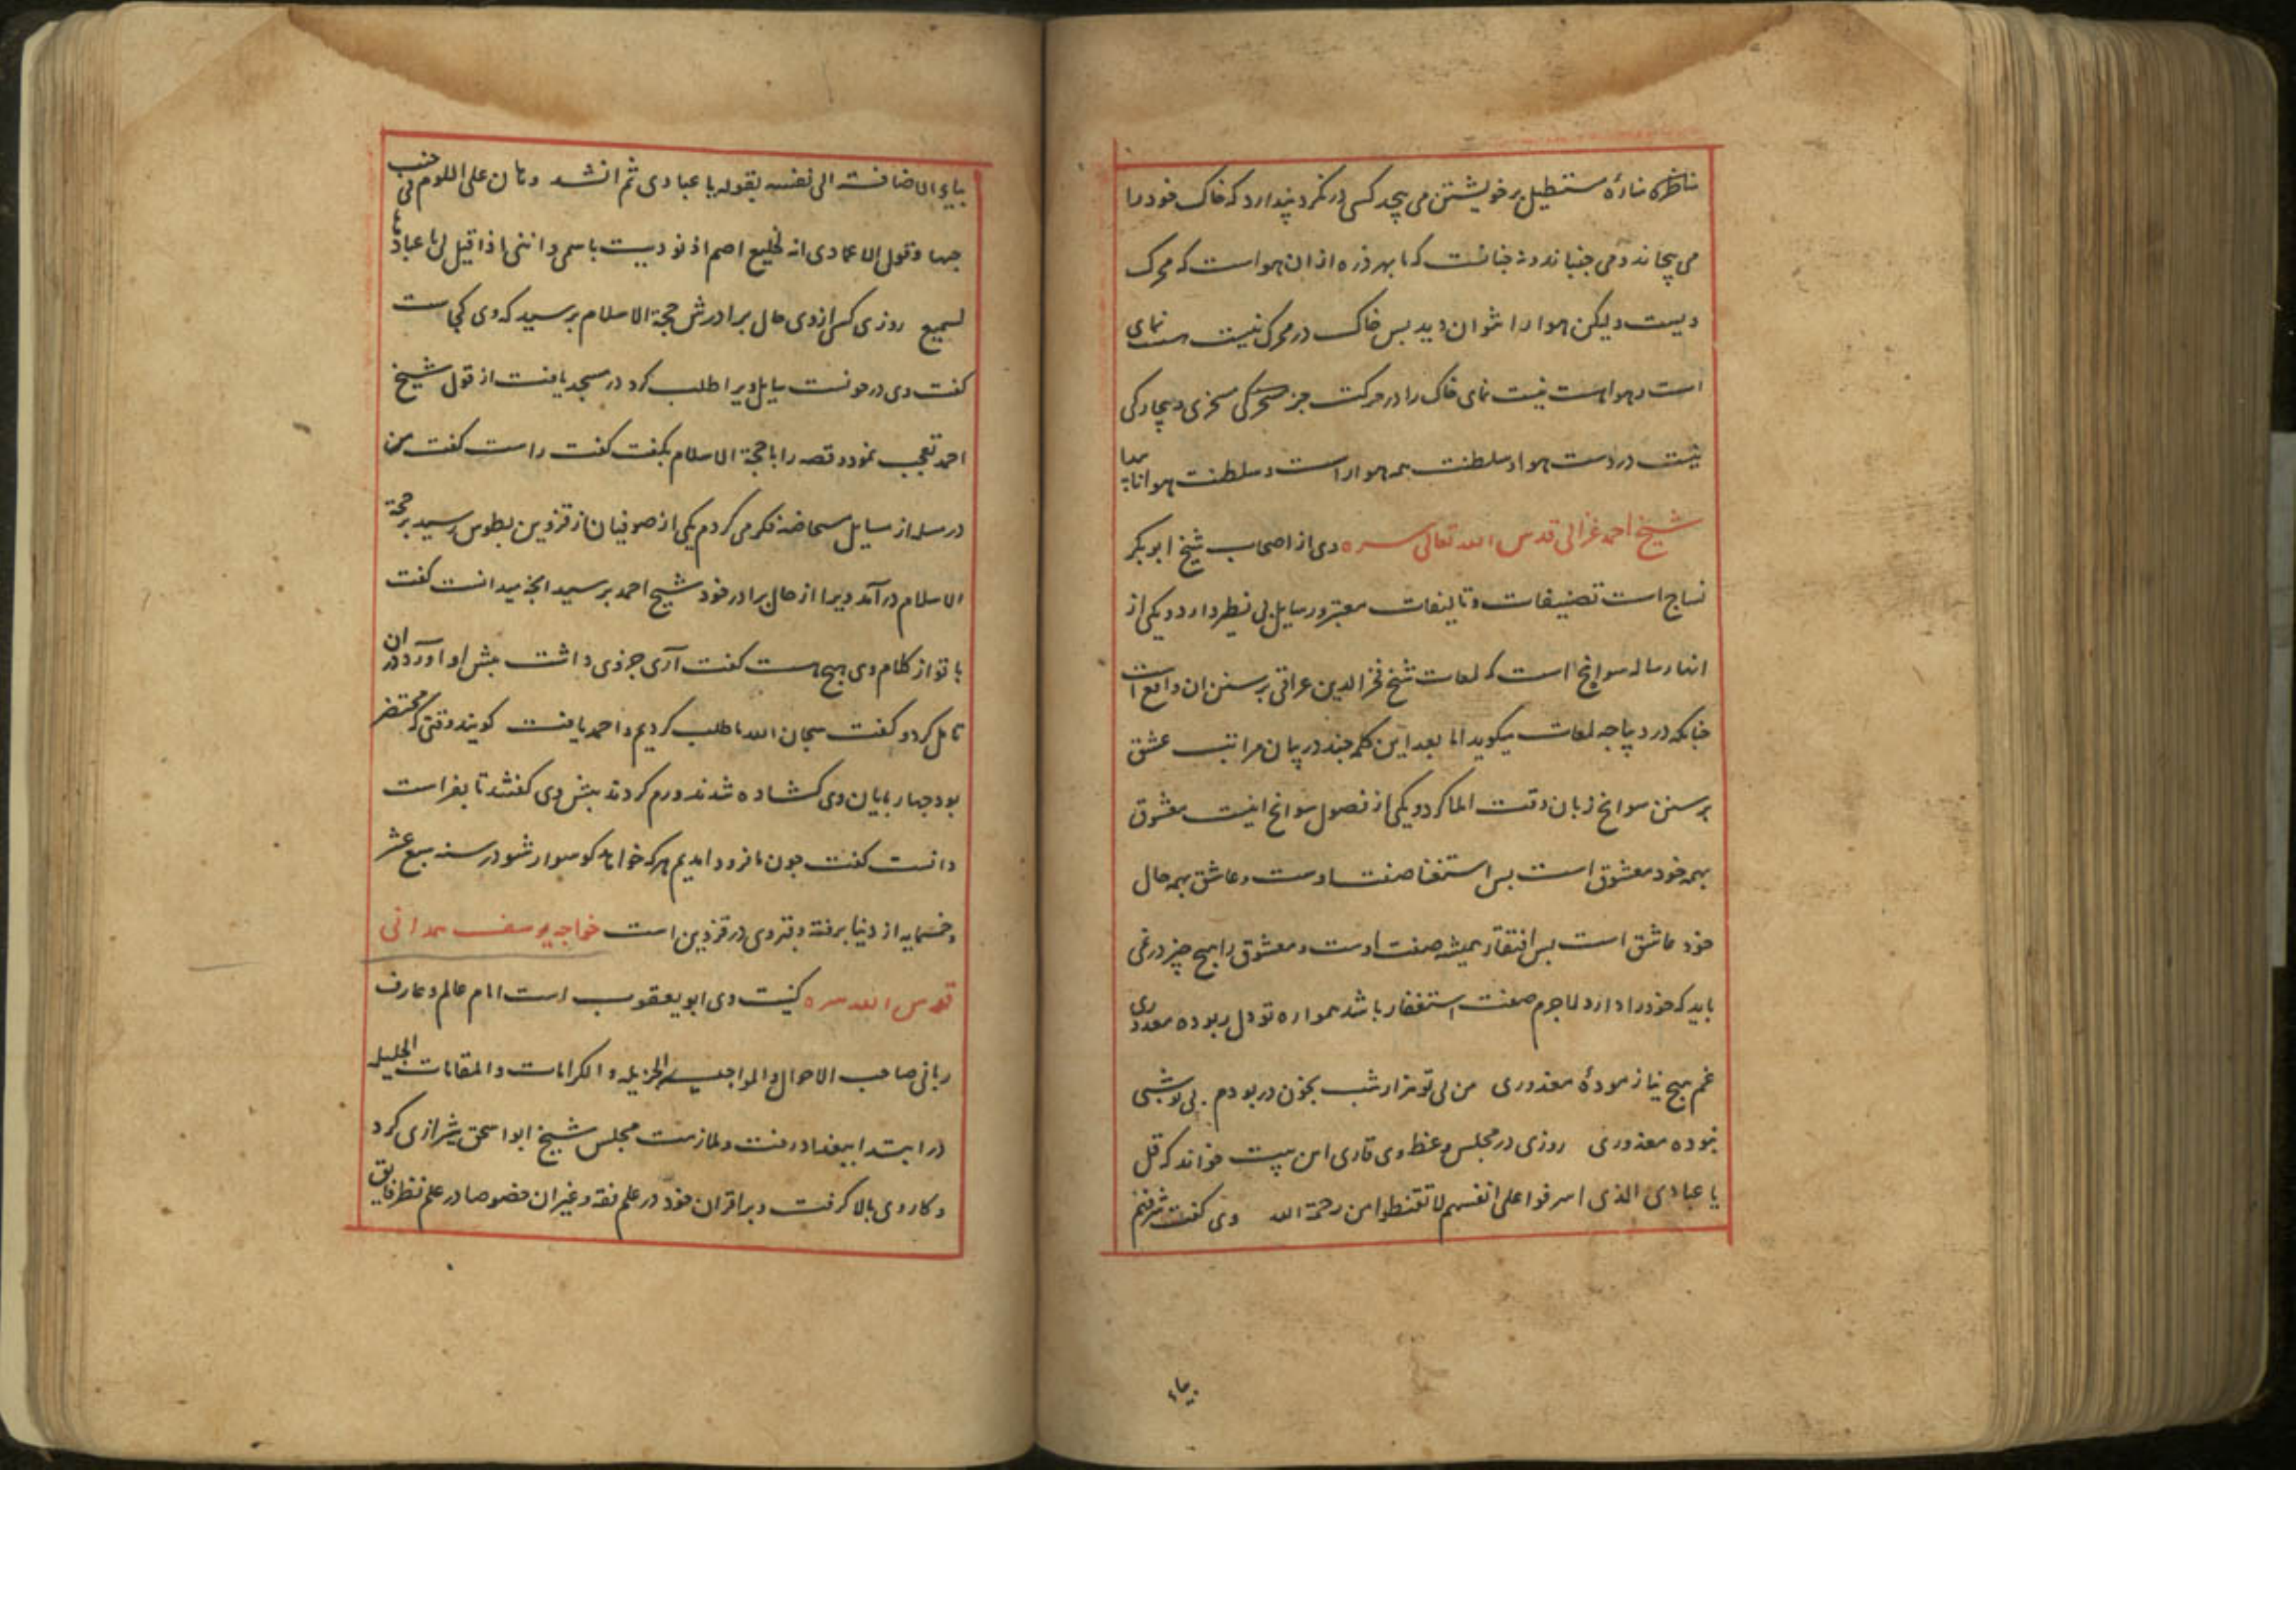 مناظره مناره مستطیل بر خویشتن می پیچد کسی در نکرد پندارد که خاک خود را
می پیچاند و می جنباند و نه چنانست که با بهر ذره از ان هواست که محرک
ویست ولیکن هوا را نتوان دید پس خاک در محرکی نیست هست نمای
است و هوا هست نیست نمای خاک را در حرکت جز مسخری و بیچارکی
نیست در دست هوا و سلطنت همه هوا را است و سلطنت هوا ناپیدا
شیخ احمد غزالی قدس الله تعالی سره وی از اصحاب شیخ ابوبکر
نساج است تصنیفات و تالیفات معتبر و رسایل بی نظیر دارد و یکی از
انها رساله سوانح است که لمعات شیخ فخر الدین عراقی بر سنن ان واقع است
چنانکه در دیباجه لمعات میکوید اما بعد این کلمه چند در بیان مراتب عشق
بر سنن سوانح زبان وقت املا کرد و یکی از فصول سوانح اینست معشوق
بهمه خود معشوق است پس استغنا صفت اوست و عاشق بهمه حال
خود عاشق است پس افتقار همیشه صفت اوست و معشوق را هیچ چیز در نمی
باید که خود را دارد لاجرم صفت استغفار باشد همواره تو دل ربوده معذوری
غم هیچ نیازموده معذوری من بی تو هزار شب بخون در بودم بی تو شبی
نبوده معذوری روزی در مجلس وعظ وی قاری این بیت خواند که قل
یا عبادی الذی اسرفوا علی انفسهم لا تقنطوا من رحمة الله وی کفت شرفهم
بیاء
بیاء الاضافت الی نفسه بقوله یا عبادی ثم انشد وهان علی اللوم فی جنب
حبها وقول الاعادی انه لخلیع اصم اذ نودیت باسمی واننی اذا قیل لی یا عبادها
لسمیع روزی کسی از وی حال برادرش حجة الاسلام پرسید که وی کجاست
کفت وی در خونست سایل ویرا طلب کرد در مسجد یافت از قول شیخ
احمد تعجب نمود و قصه را با حجة الاسلام بکفت کفت راست کفت من
در مسله از مسایل مستحاضه فکر می کردم یکی از صوفیان از قزوین بطوس رسید بر حجة
الاسلام درآمد ویرا از حال برادر خود شیخ احمد پرسید انچه میدانست کفت
با تو از کلام وی هیچ هست کفت آری جزوی داشت پیش او آورد در ان
تامل کرد و کفت سبحان الله ما طلب کردیم و احمد یافت کویند وقتی که محتضر
بود چهار پایان وی کشاده شدند و رم کردند پیش وی کفتند تا بفراست
دانست کفت چون ما فرود امدیم هر که خواهد کو سوار شو در سنه سبع عشر
و خمسمایه از دنیا برفته و قبر وی در قزوین است خواجه یوسف همدانی
قدس الله سره کنیت وی ابو یعقوب است امام عالم و عارف
ربانی صاحب الاحوال والمواجید الجزیله و الکرامات والمقامات الجلیله
در ابتدا ببغداد رفت و ملازمت مجلس شیخ ابو اسحق شیرازی کرد
و کار وی بالا کرفت و بر اقران خود در علم فقه و غیر ان خصوصا در علم نظر فایق